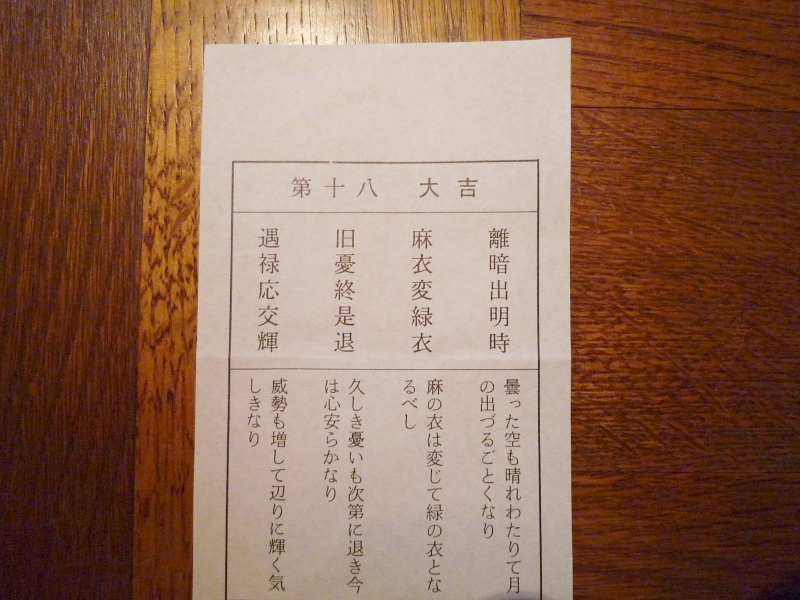 第十八 大吉
離暗出明時
麻衣変緑衣
旧憂終是退
遇禄応交輝
曇った空も晴れわたりて月
の出づるごとくなり
麻の衣は変じて緑の衣とな
るべし
久しき憂いも次第に退き今
は心安らかなり
威勢も増して辺りに輝く気
しきなり